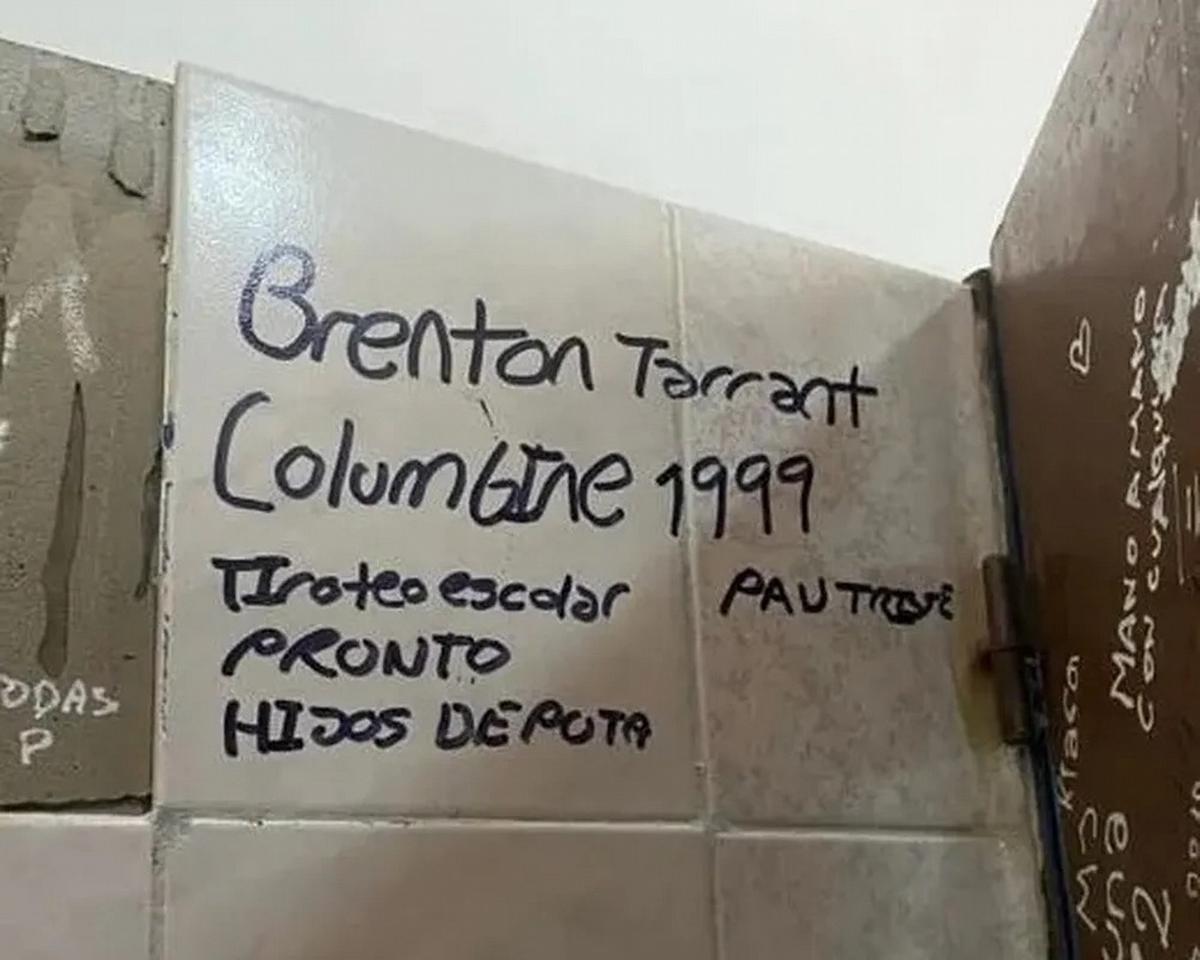 Brenton Tarrant
Columbine 1999
TIroteo escolar
PRONTO
HIJOS DE PUTA
PAU TRISTE
ODAS
P
MANO A MANO
CON
Flaca
una